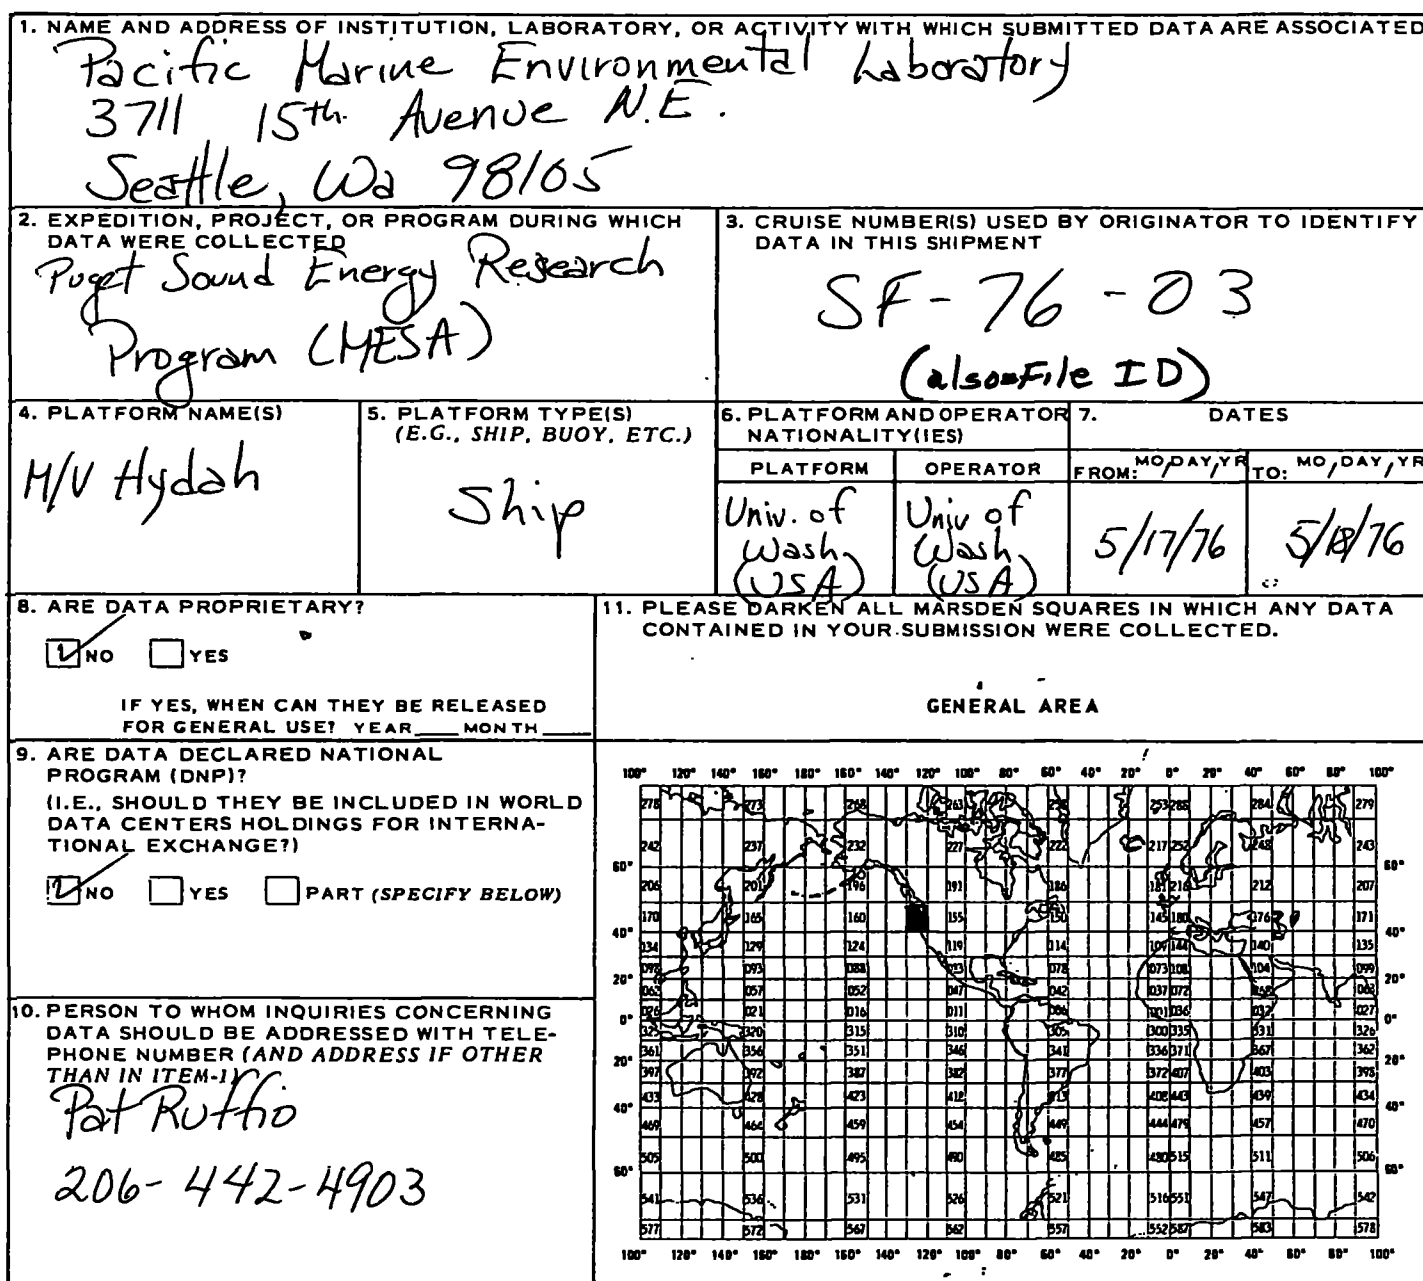 1. NAME AND ADDRESS OF INSTITUTION, LABORATORY, OR ACTIVITY WITH WHICH SUBMITTED DATA ARE ASSOCIATED
Pacific Marine Environmental Laboratory
3711 15th Avenue N.E.
Seattle, Wa 98105
2. EXPEDITION, PROJECT, OR PROGRAM DURING WHICH
DATA WERE COLLECTED
Puget Sound Energy Research
Program (MESA)
3. CRUISE NUMBER(S) USED BY ORIGINATOR TO IDENTIFY
DATA IN THIS SHIPMENT
SF-76-03
(also=File ID)
4. PLATFORM NAME(S)
M/V Hydah
5. PLATFORM TYPE(S)
(E.G., SHIP, BUOY, ETC.)
Ship
6. PLATFORM AND OPERATOR
NATIONALITY(IES)
PLATFORM
Univ. of
Wash.
(USA)
OPERATOR
Univ of
Wash
(USA)
7. DATES
FROM: MO, DAY, YR
5/17/76
TO: MO, DAY, YR
5/18/76
8. ARE DATA PROPRIETARY?
NO YES
IF YES, WHEN CAN THEY BE RELEASED
FOR GENERAL USE? YEAR____ MONTH____
9. ARE DATA DECLARED NATIONAL
PROGRAM (DNP)?
(I.E., SHOULD THEY BE INCLUDED IN WORLD
DATA CENTERS HOLDINGS FOR INTERNA-
TIONAL EXCHANGE?)
NO YES PART (SPECIFY BELOW)
10. PERSON TO WHOM INQUIRIES CONCERNING
DATA SHOULD BE ADDRESSED WITH TELE-
PHONE NUMBER (AND ADDRESS IF OTHER
THAN IN ITEM-1)
Pat Ruffio
206-442-4903
11. PLEASE DARKEN ALL MARSDEN SQUARES IN WHICH ANY DATA
CONTAINED IN YOUR SUBMISSION WERE COLLECTED.
GENERAL AREA
100° 120° 140° 160° 180° 160° 140° 120° 100° 80° 60° 40° 20° 0° 20° 40° 60° 80° 100°
278 273 268 263 258 253 288 284 279
242 237 232 227 222 217 252 248 243
60° 60°
206 201 196 191 186 181 216 212 207
170 165 160 155 150 145 180 176 171
40° 40°
134 129 124 119 114 109 144 140 135
098 093 088 083 078 073 108 104 099
20° 20°
062 057 052 047 042 037 072 068 063
026 021 016 011 006 001 036 032 027
0° 0°
325 320 315 310 305 300 335 331 326
361 356 351 346 341 336 371 367 362
20° 20°
397 392 387 382 377 372 407 403 398
433 428 423 418 413 408 443 439 434
40° 40°
469 464 459 454 449 444 479 457 470
505 500 495 490 485 480 515 511 506
60° 60°
541 536 531 526 521 516 551 547 542
577 572 567 562 557 552 587 583 578
100° 120° 140° 160° 180° 160° 140° 120° 100° 80° 60° 40° 20° 0° 20° 40° 60° 80° 100°